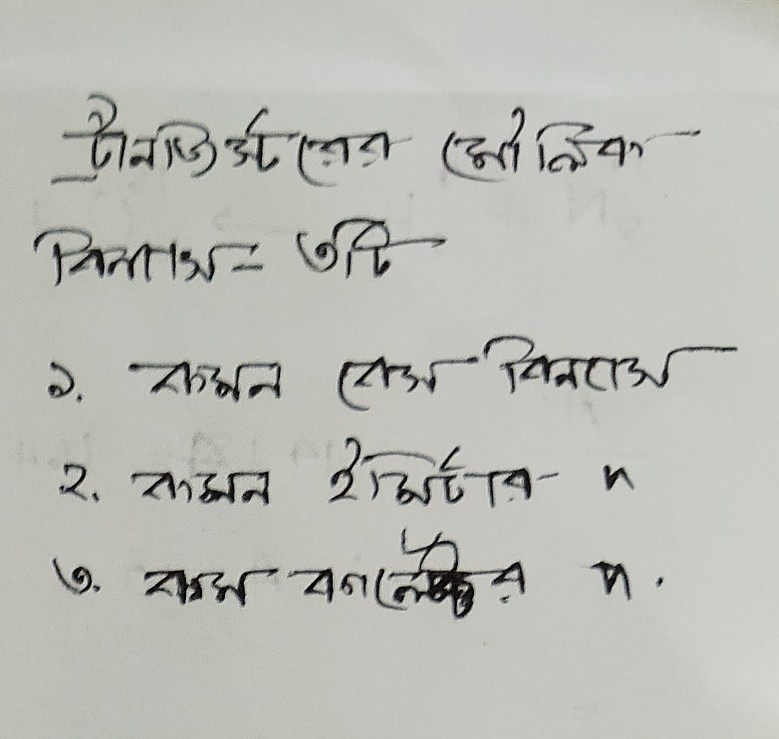 ট্রানজিস্টরের মৌলিক
বিন্যাস = ৩টি
১. কমন বেস বিন্যাস
২. কমন ইমিটার "
৩. কমন কালেক্টর "।